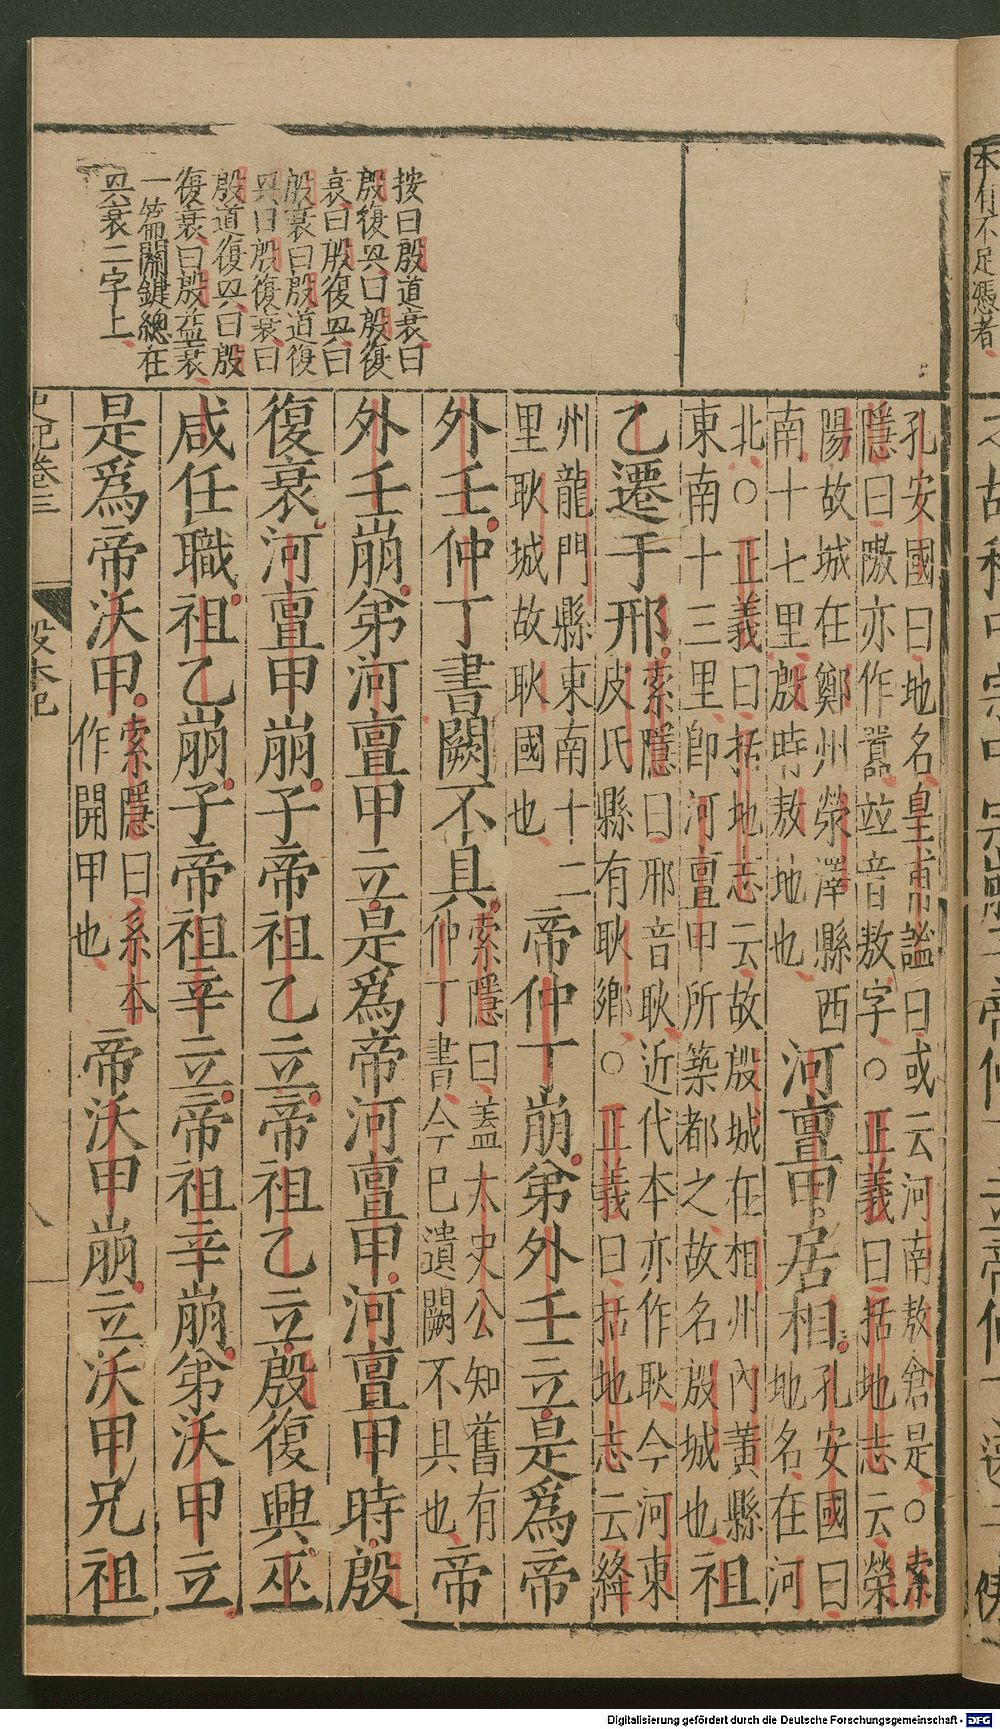 按曰殷道衰曰
殷復㒷曰殷復
衰曰殷復㒷曰
殷衰曰殷道復
㒷曰殷復衰曰
殷道復㒷曰殷
復衰曰殷益衰
一篇關鍵總在
㒷衰二字上
孔安國曰地名皇甫謐曰或云河南敖倉是○索
隱曰隞亦作囂並音敖字○正義曰括地志云滎
陽故城在鄭州滎澤縣西
南十七里殷時敖地也
河亶甲居相
孔安國曰
地名在河
北○正義曰括地志云故殷城在相州內黃縣
東南十三里卽河亶甲所築都之故名殷城也
祖
乙遷于邢
索隱曰邢音耿近代本亦作耿今河東
皮氏縣有耿鄉○正義曰括地志云絳
州龍門縣東南十二
里耿城故耿國也
帝仲丁崩弟外壬立是爲帝
外壬仲丁書闕不具
索隱曰蓋太史公知舊有
仲丁書今已遺闕不具也
帝
外壬崩弟河亶甲立是爲帝河亶甲河亶甲時殷
復衰河亶甲崩子帝祖乙立帝祖乙立殷復興巫
咸任職祖乙崩子帝祖辛立帝祖辛崩弟沃甲立
是爲帝沃甲
索隱曰系本
作開甲也
帝沃甲崩立沃甲兄祖
史記卷三
殷本紀
八
本有不足憑者
Digitalisierung gefördert durch die Deutsche Forschungsgemeinschaft - DFG